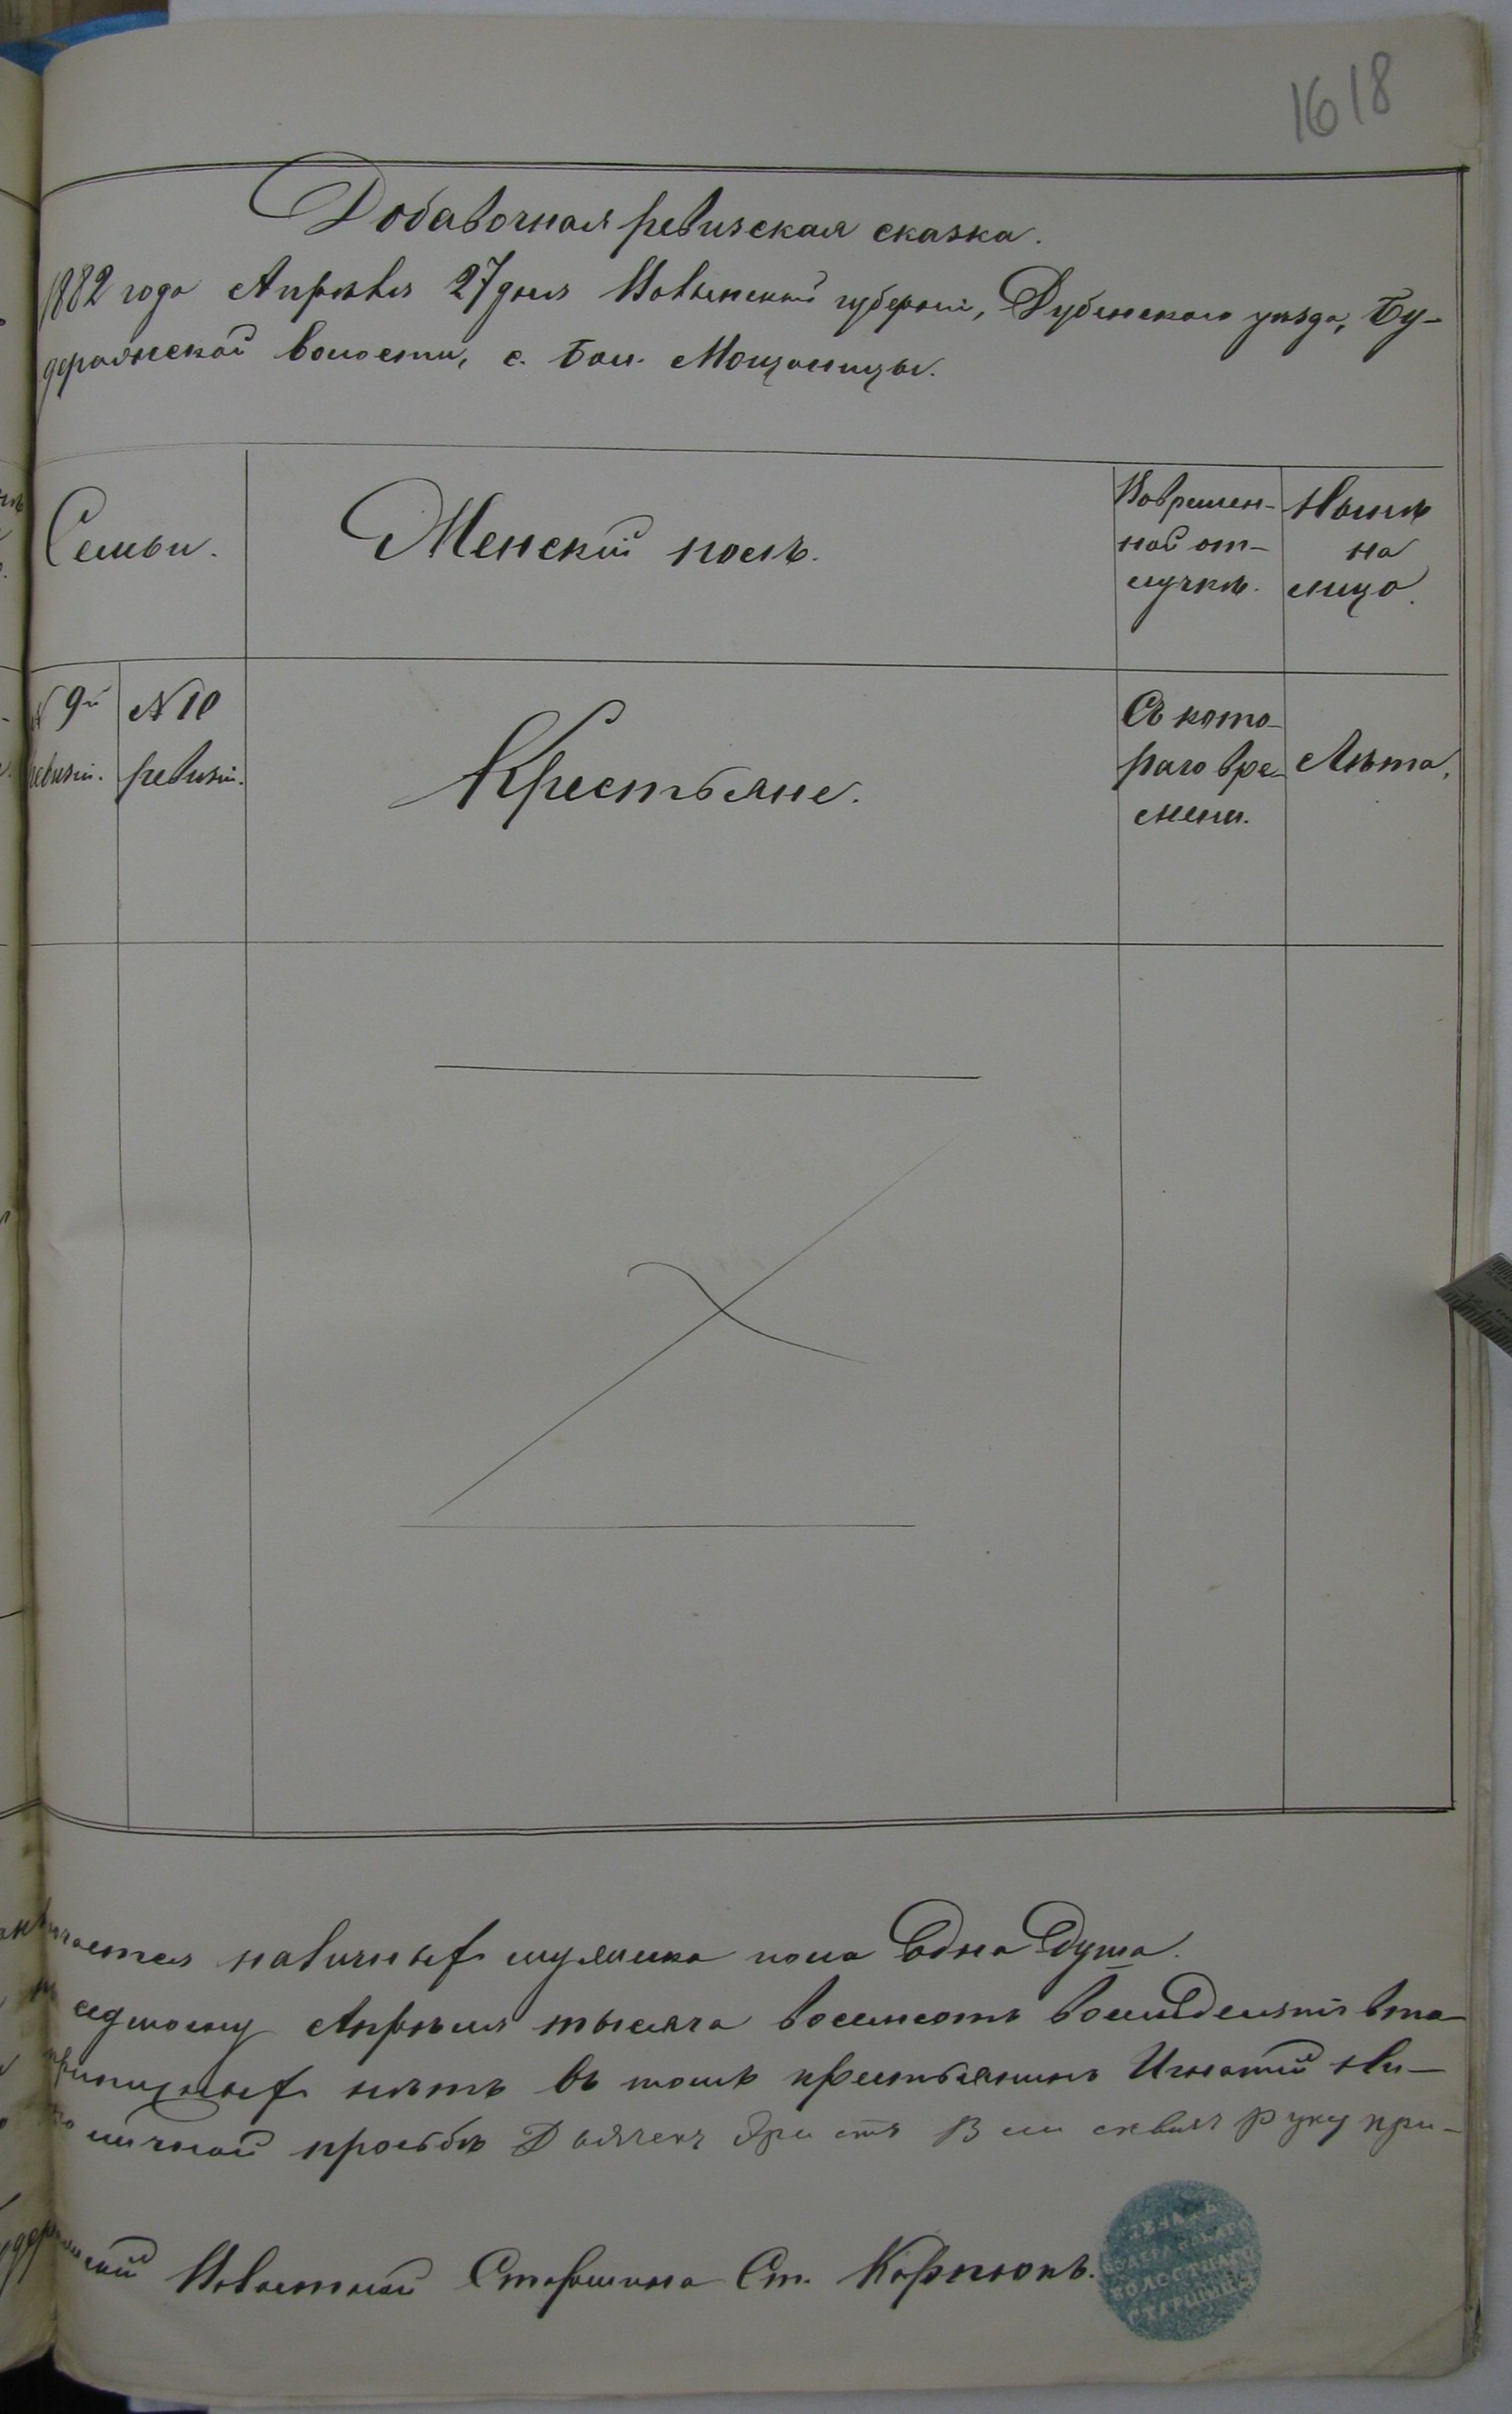 1618
Добавочная ревизская сказка.
1882 года Апрѣля 27 дня Волынской губерніи, Дубенскаго уѣзда, Бу-
деражской волости, с. Бол. Мощаницы.
Семьи.
Женскій полъ.
Во времен-
ной от-
лучкѣ.
Нынѣ
на
лицо.
№ 9й
ревизіи.
№ 10
ревизіи.
Крестьяне.
Съ кото-
раго вре-
мени.
Лѣта.
наличныхъ мужеска пола Одна Душа.
седьмому Апрѣля тысяча восемсотъ восемьдесятъ вто-
нѣтъ въ томъ крестьянинъ Игнатій
личной просьбѣ руку при-
Волостной Старшина Ст. Карпюкъ.
ПЕЧАТЬ
ВОЛОСТНАГО
СТАРШИНЫ